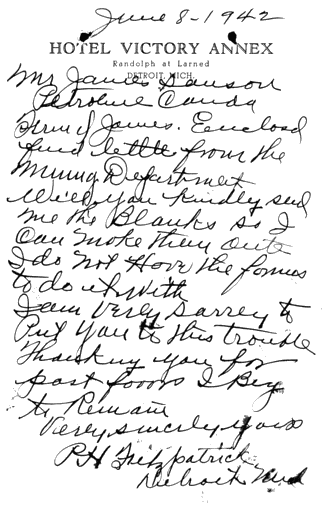 June 8-1942
HOTEL VICTORY ANNEX
Randolph at Larned
DETROIT, MICH.
Mr James Dawson
Petrolia Canda
Frind James. Eenclosd
find lettle from the
Mining Departmet
Will you kindly send
me the Blanks so I
Can make them oute
I do not Have the formes
to do it with
I am Verey sarrey to
Put you to this trouble
thanking you for
past favors I Beg
to Remain
Verey sincerly yours
P H Fitzpatrick
Detroit Mich